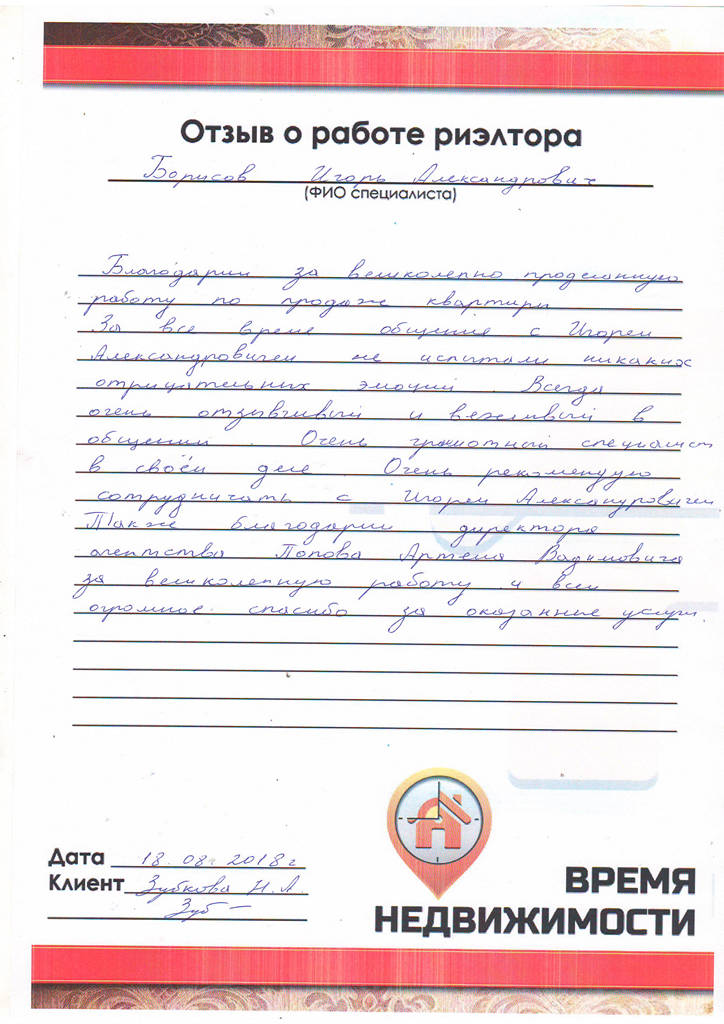 Отзыв о работе риэлтора
Борисов Игорь Александрович
(ФИО специалиста)
Благодарим за великолепно проделанную
работу по продаже квартиры
За все время общения с Игорем
Александровичем не испытали никаких
отрицательных эмоций. Всегда
очень отзывчивый и вежливый в
общении. Очень грамотный специалист
в своём деле Очень рекомендую
сотрудничать с Игорем Александровичем
Также благодарим директора
агентства Попова Артема Вадимовича
за великолепную работу и всем
огромное спасибо за оказанные услуги.
Дата 18.08.2018г
Клиент Зубкова Н.А
Зуб
ВРЕМЯ
НЕДВИЖИМОСТИ